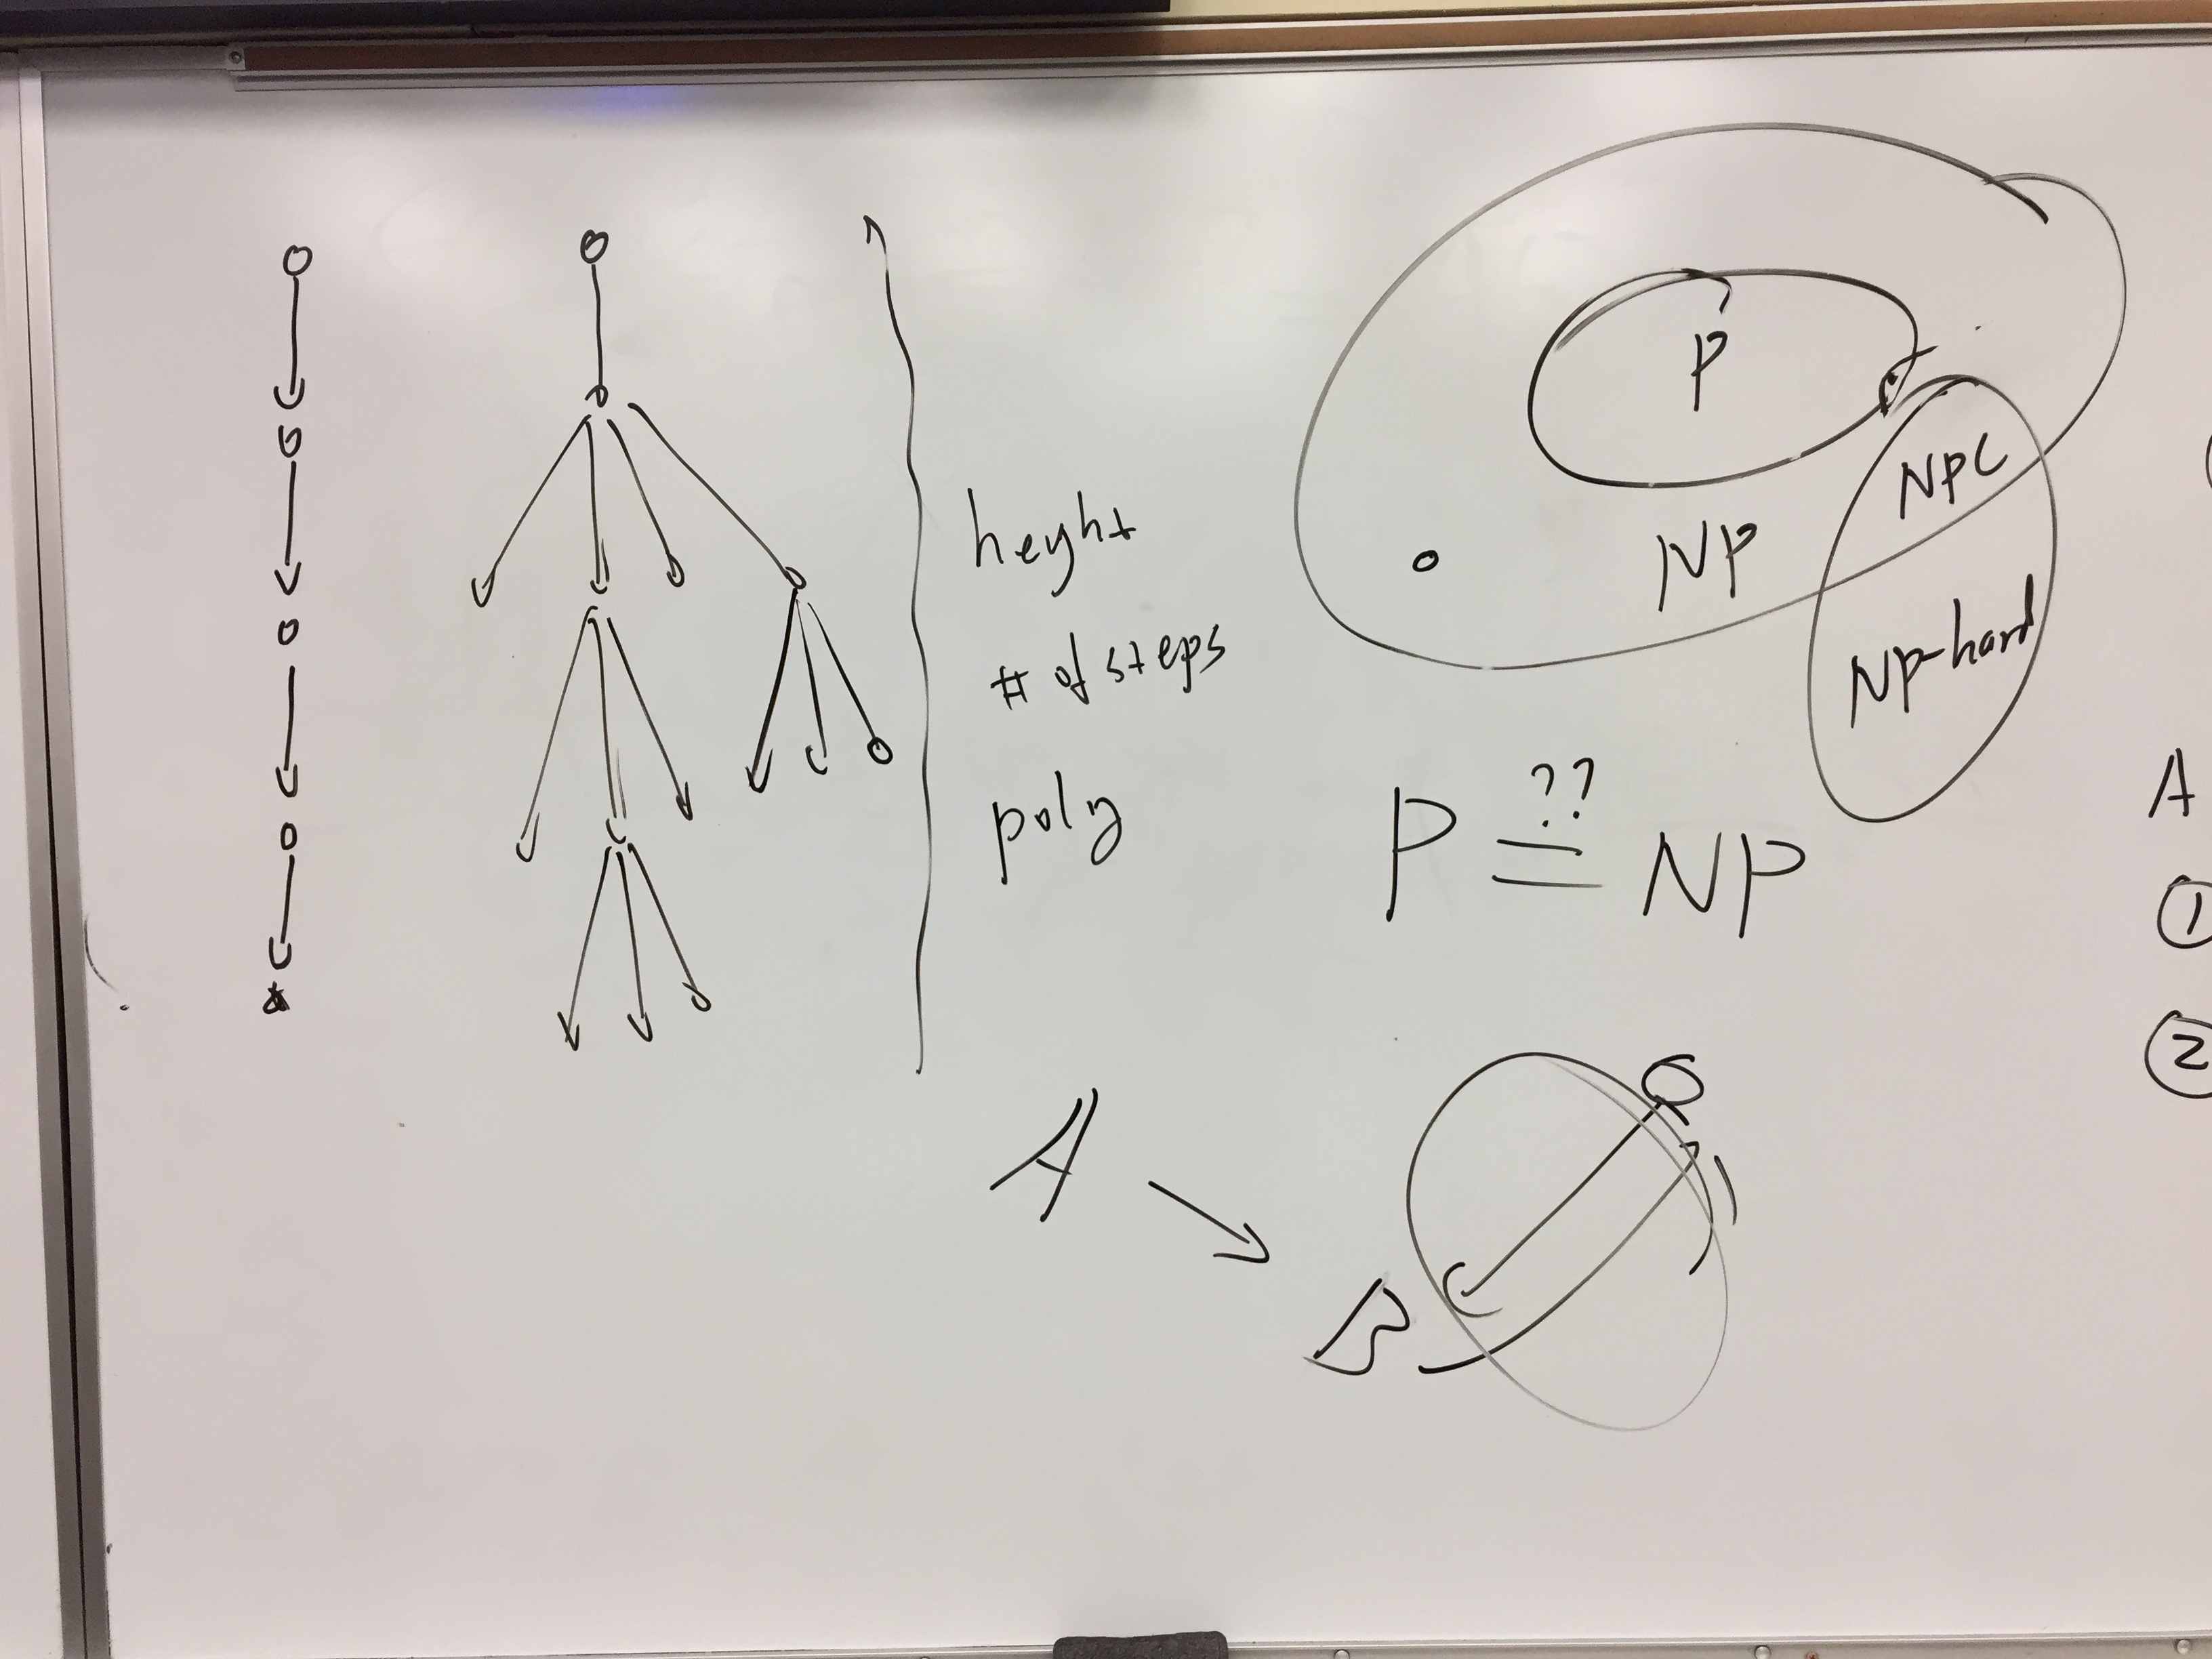 heyht
# of steps
poly
P
NPC
NP
NP-hard
??
P = NP
A
B
A
①
②